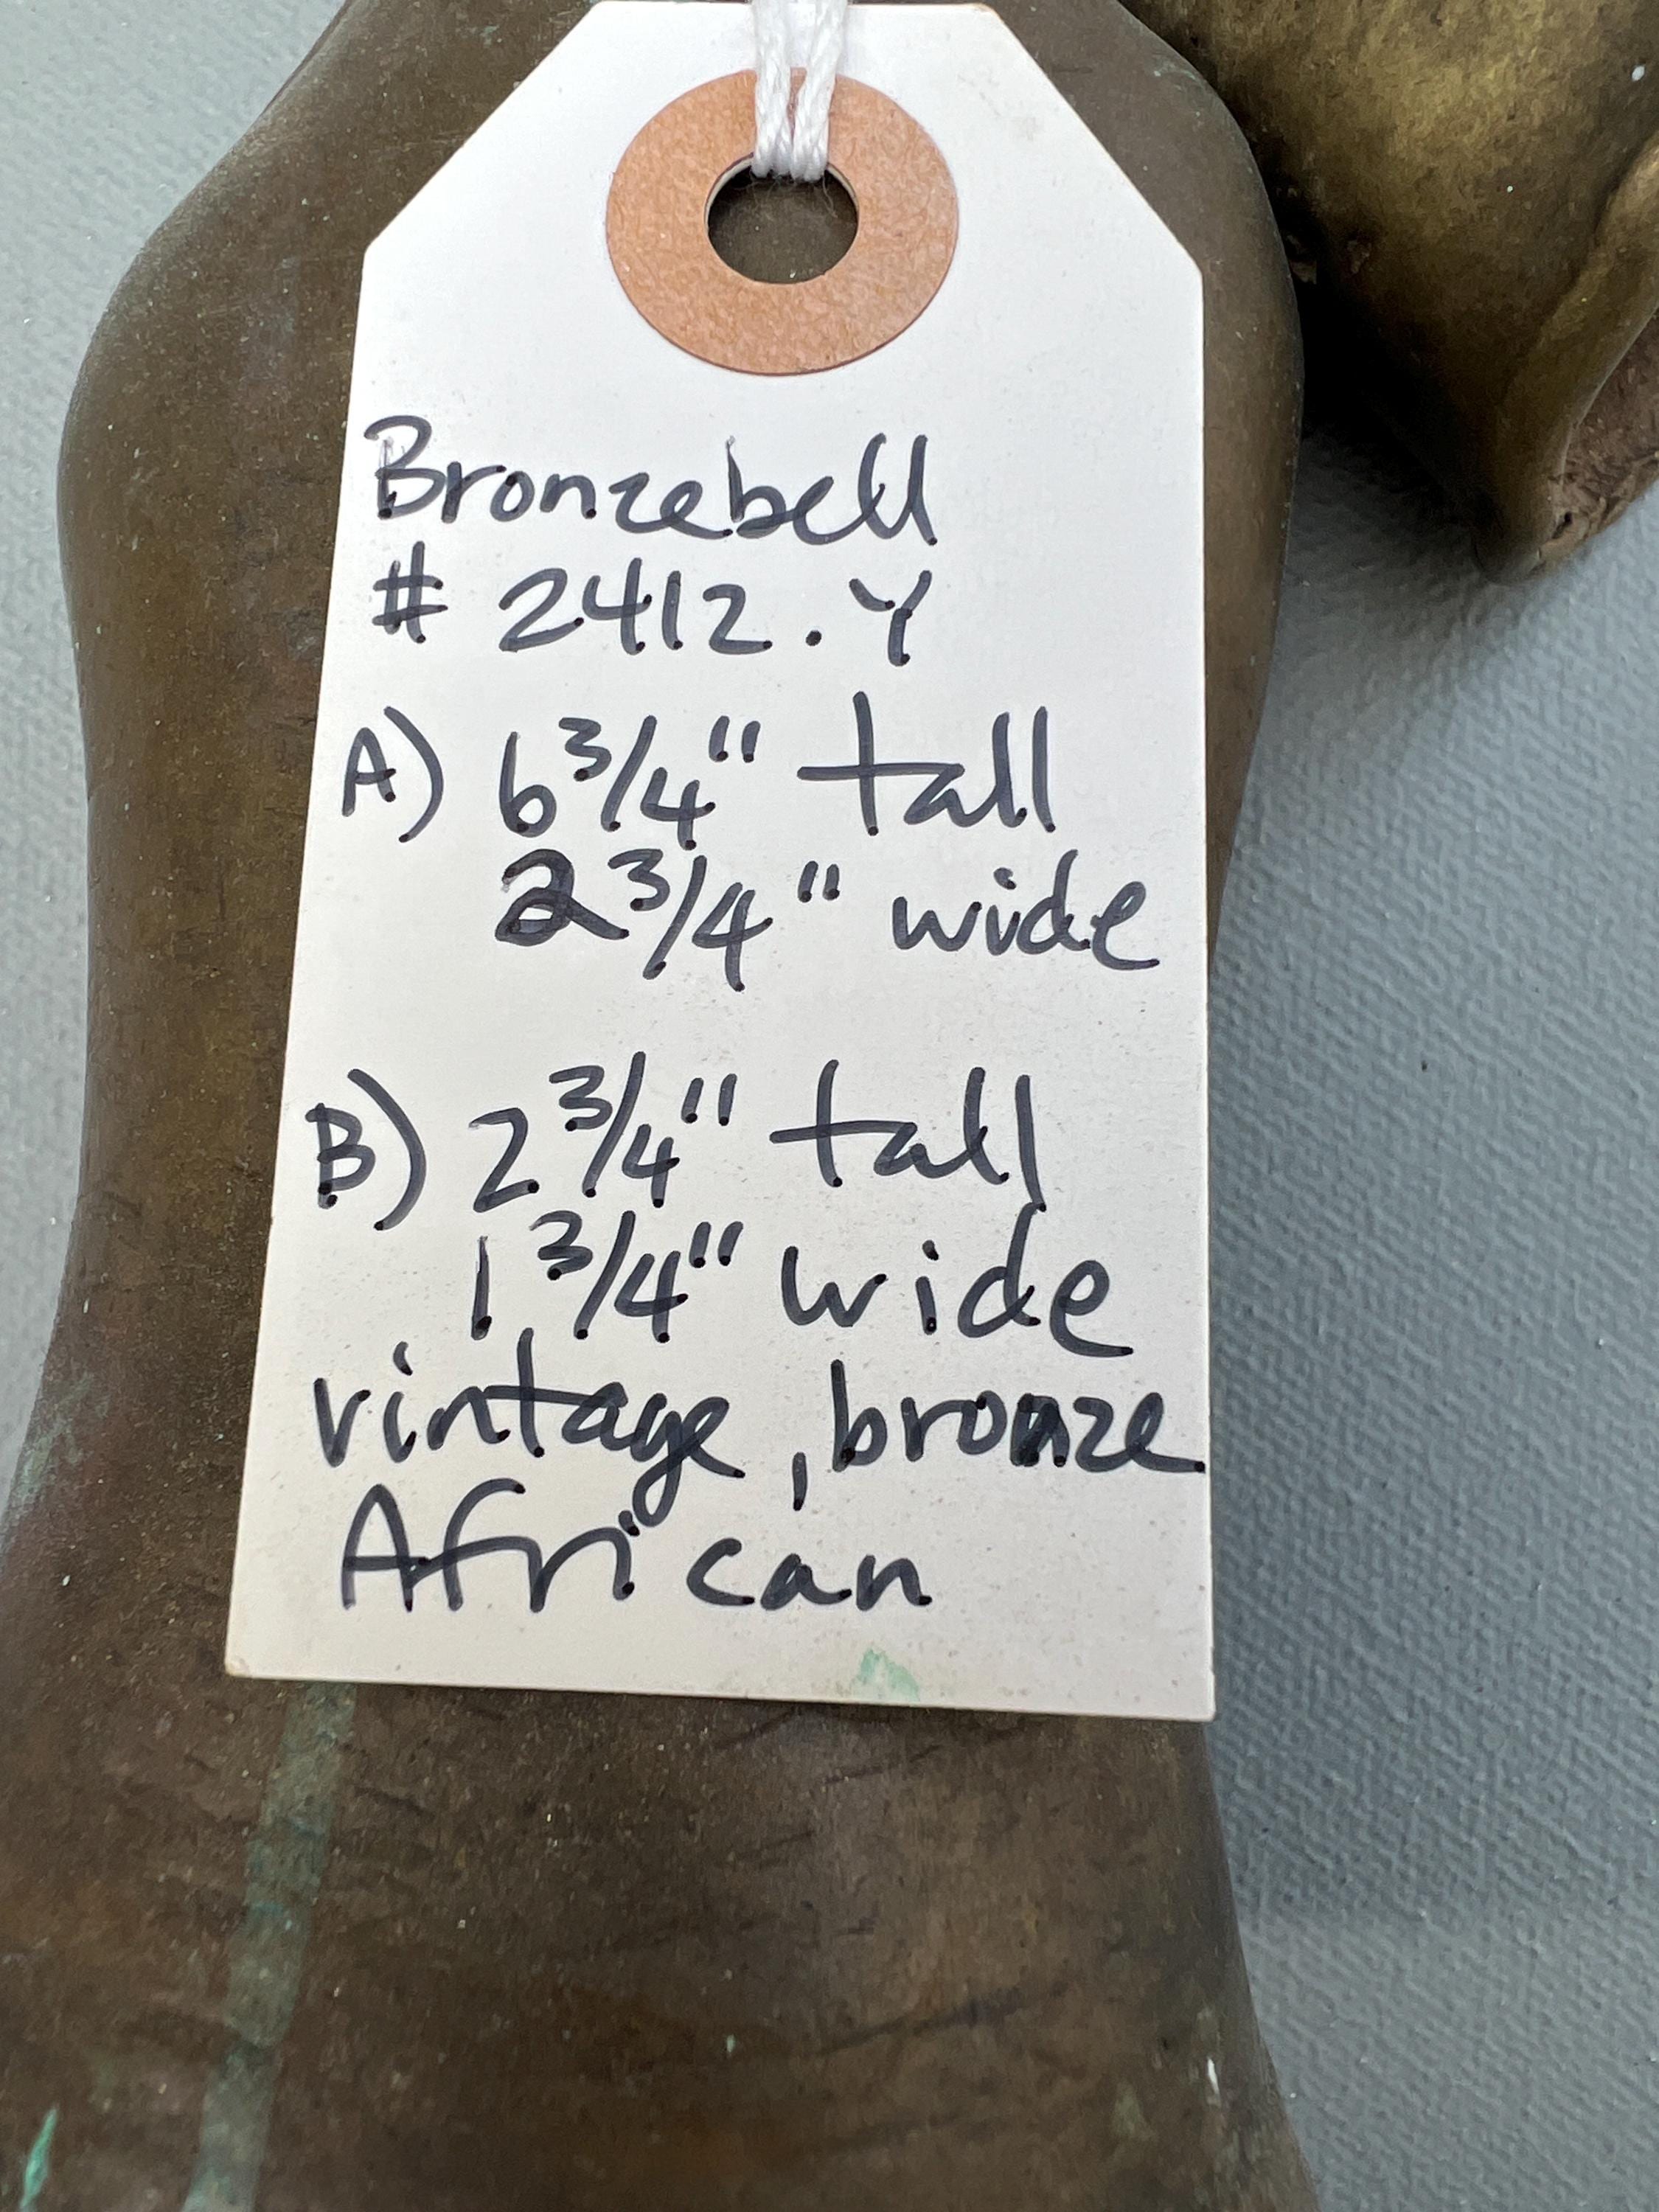 Bronzebell
# 2412.Y
A) 6 3/4" tall
2 3/4" wide
B) 2 3/4" tall
1 3/4" wide
vintage, bronze
African